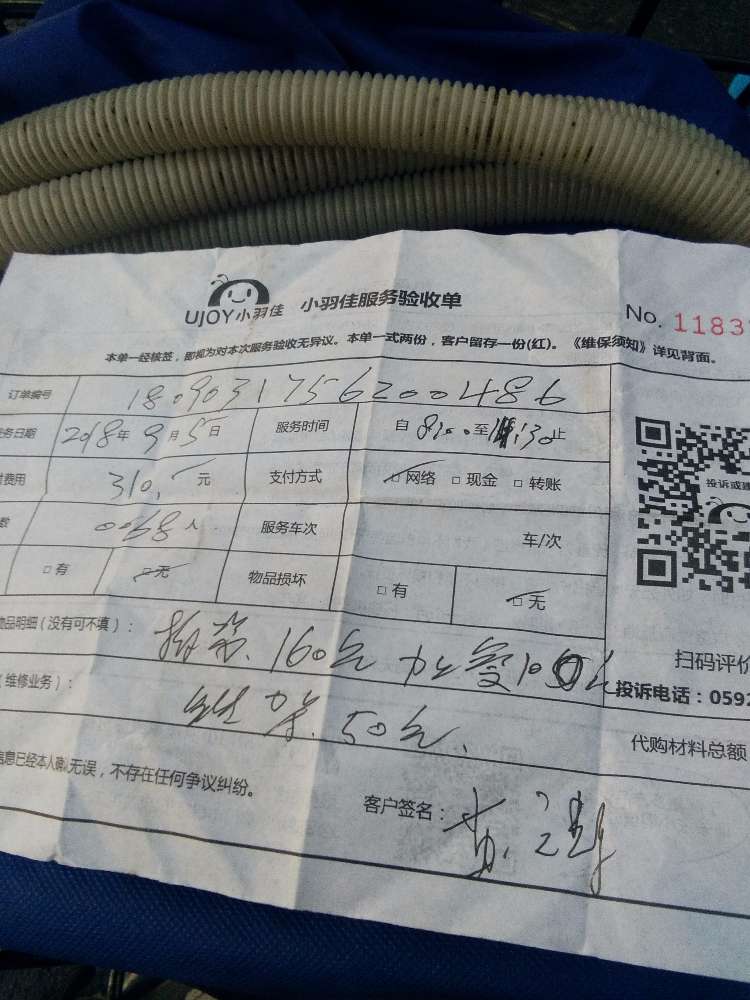 UJOY小羽佳 小羽佳服务验收单
No. 1183
本单一经核签，即视为对本次服务验收无异议。本单一式两份，客户留存一份(红)。《维保须知》详见背面。
订单编号 18090317562000486
务日期 2018年9月5日 服务时间 自8:00至11:30止
费用 310. 元 支付方式 网络 现金 转账
数 0068人 服务车次 车/次
有 无 物品损坏 有 无
投诉或建
物品明细（没有可不填）： 160元 加 100
扫码评价
（维修业务）： 50元.
投诉电话：0592
代购材料总额
信息已经本人确认无误，不存在任何争议纠纷。
客户签名：